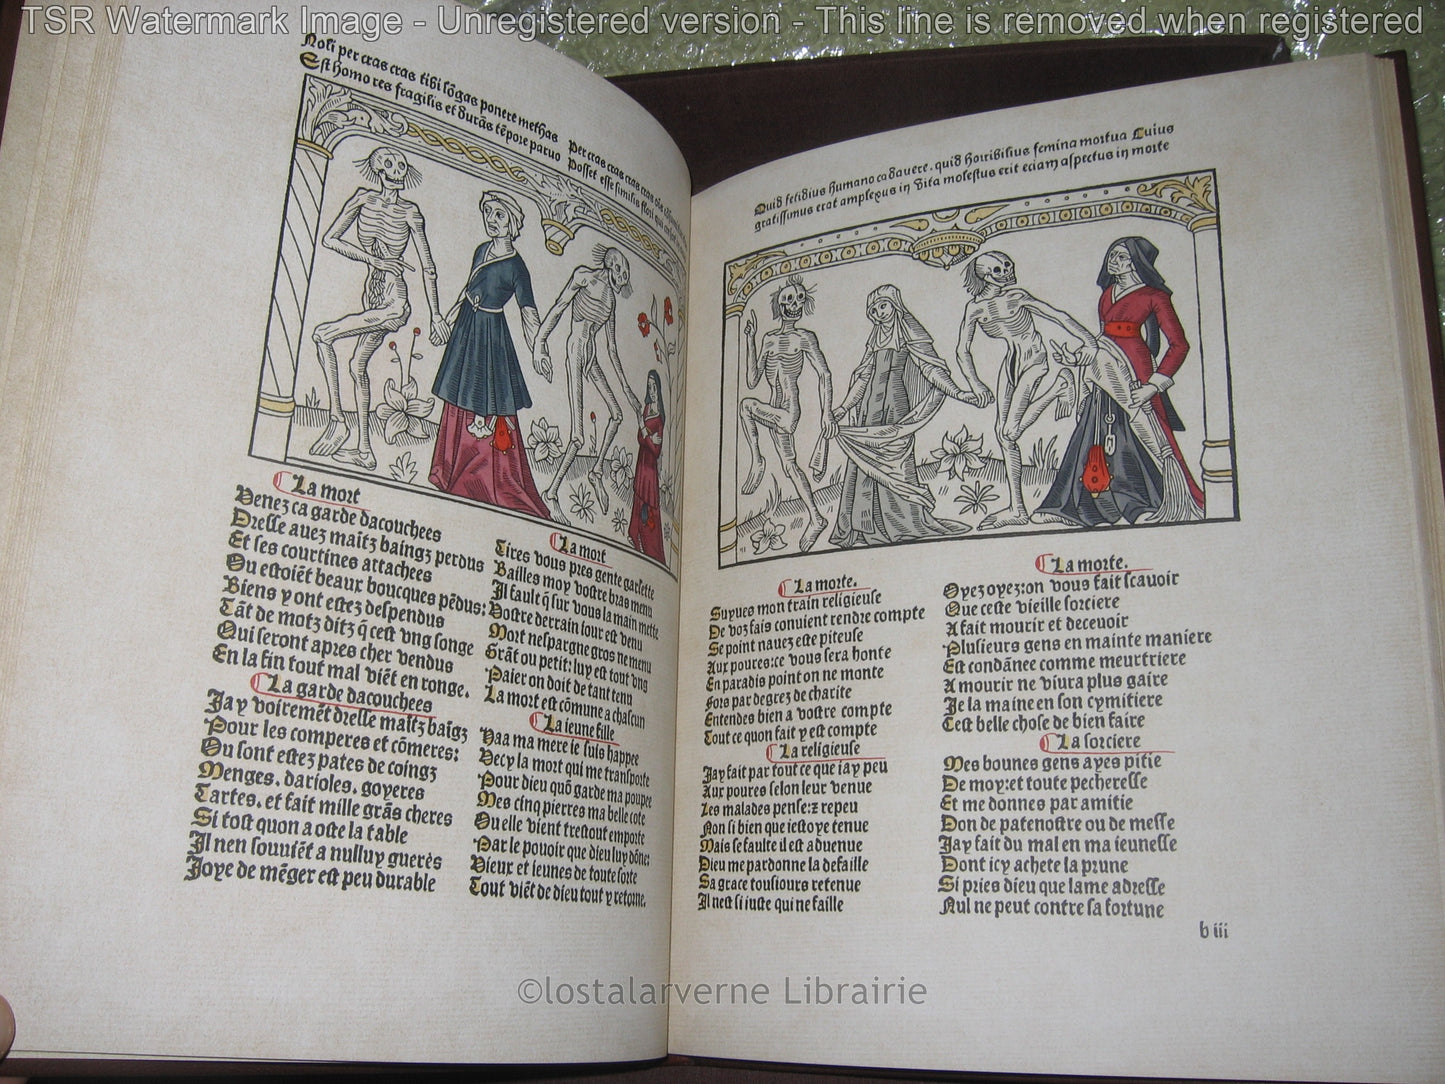 TSR Watermark Image - Unregistered version - This line is removed when registered
Noli per cras cras tibi lōgas ponere methas
Est homo res fragilis et durās tēpore paruo
Per cras cras cras cras
Posset esse similis flori qui
La mort
Venez ca garde dacouchees
Dresse auez maītz baingz perdus
Et ses courtines attachees
Ou estoiēt beaux boucques pēdus:
Biens y ont estez despendus
Tāt de motz ditz q̄ cest vng songe
Qui seront apres cher vendus
En la fin tout mal viēt en ronge.
La garde dacouchees
Jay voiremēt dresse maītz baīgz
Pour les comperes et cōmeres:
Ou sont estez pates de coingz
Menges. darioles. goyeres
Tartes. et fait mille grās cheres
Si tost quon a oste la table
Il nen souuiēt a nulluy guerès
Joye de mēger est peu durable
La mort
Tires vous pres gente garsette
Bailles moy vostre bras menu
Il faule q̄ sur vous la main mette
Vostre derrain tour est venu
Mort nespargne gros ne menu
Grāt ou petit: luy est tout vng
Paier on doit de tant tenu
La mort est cōmune a chascun
La ieune fille
Haa ma mere ie suis happee
Vecy la mort qui me transporte
Pour dieu quō garde ma poupee
Mes cinq pierres ma belle cote
Ou elle vient trestout emporte
Par le pouoir que dieu luy dōne:
Vieux et ieunes de toute sorte
Tout viēt de dieu tout y retorne.
Quid fetidius humano cadauere. quid horribilius femina mortua Cuius
gratissimus erat amplexus in vita molestus erit eciam aspectus in morte
La morte.
Suyues mon train religieuse
De voz fais conuient rendre compte
Se point nauez este piteuse
Aux poures: ce vous sera honte
En paradis point on ne monte
Fors par degrez de charite
Entendes bien a vostre compte
Tout ce quon fait y est compte
La religieuse
Jay fait par tout ce que iay peu
Aux poures selon leur venue
Les malades pense:z repeu
Non si bien que iestoye tenue
Mais se faulte il est aduenue
Dieu me pardonne la defaille
Sa grace tousiours retenue
Il nest si iuste qui ne faille
La morte.
Oyez oyez: on vous fait scauoir
Que ceste vieille sorciere
A fait mourir et deceuoir
Plusieurs gens en mainte maniere
Est condānee comme meurtriere
A mourir ne viura plus gaire
Je la maine en son cymitiere
Cest belle chose de bien faire
La sorciere
Mes bounes gens ayes pitie
De moy: et toute pecheresse
Et me donnes par amitie
Don de patenostre ou de messe
Jay fait du mal en ma ieunesse
Dont icy achete la prune
Si pries dieu que lame adresse
Nul ne peut contre sa fortune
b iii
©lostalarverne Librairie